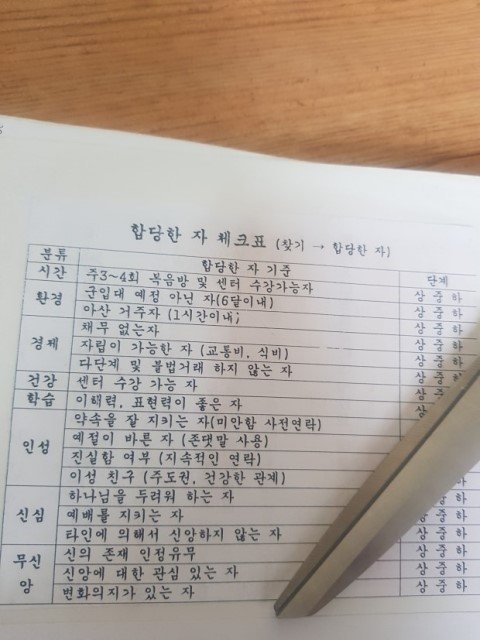 합당한 자 체크표 (찾기 → 합당한 자)
분류 합당한 자 기준 단계
시간 주3~4회 복음방 및 센터 수강가능자 상 중 하
환경 군입대 예정 아닌 자(6달이내) 상 중 하
아산 거주자 (1시간이내; 상 중 하
경제 채무 없는자 상 중 하
자립이 가능한 자 (교통비, 식비) 상 중 하
다단계 및 불법거래 하지 않는 자 상 중
건강 센터 수강 가능 자 상 중
학습 이해력, 표현력이 좋은 자 상
인성 약속을 잘 지키는 자(미안함 사전연락)
예절이 바른 자 (존댓말 사용)
진실함 여부 (지속적인 연락)
이성 친구 (주도권, 건강한 관계) 하
신심 하나님을 두려워 하는 자 중 하
예배를 지키는 자 상 중 하
타인에 의해서 신앙하지 않는 자 상 중 하
무신앙 신의 존재 인정유무 상 중 하
신앙에 대한 관심 있는 자 상 중 하
변화의지가 있는 자 상 중 하